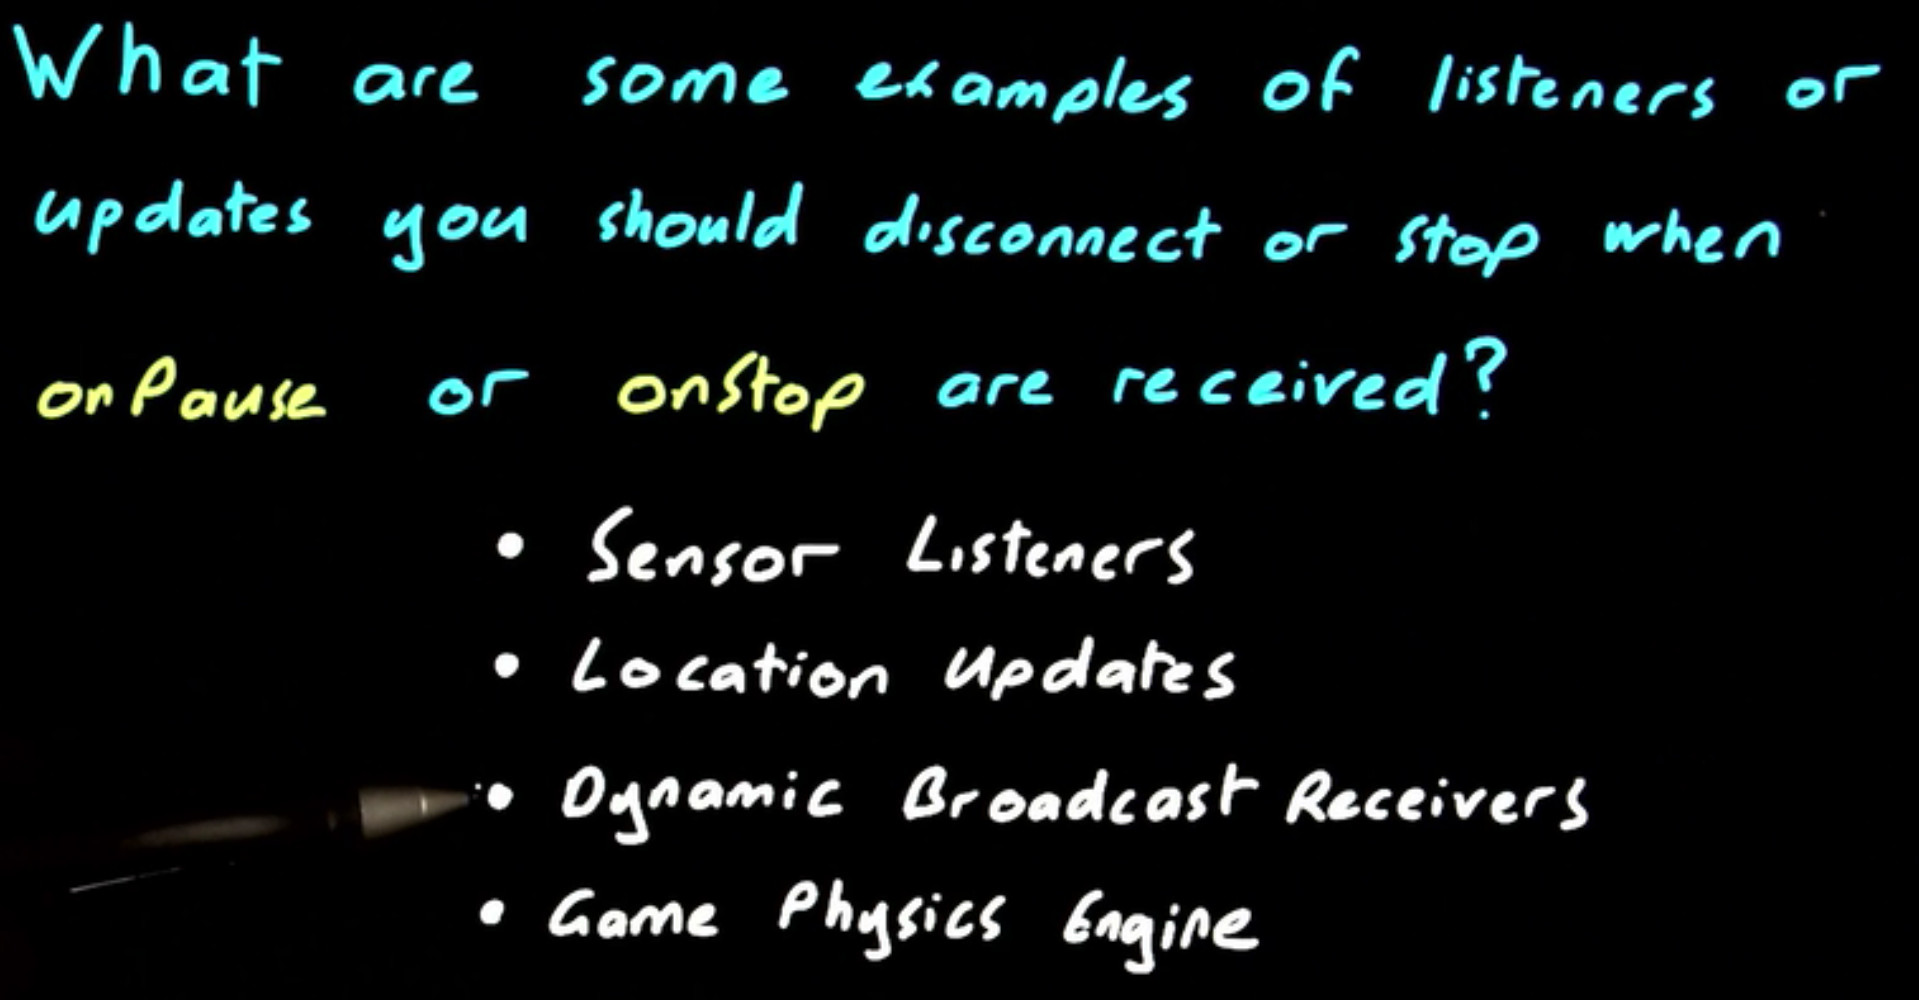 What are some examples of listeners or
updates you should disconnect or stop when
onPause or onStop are received?
• Sensor Listeners
• Location Updates
• Dynamic Broadcast Receivers
• Game Physics Engine